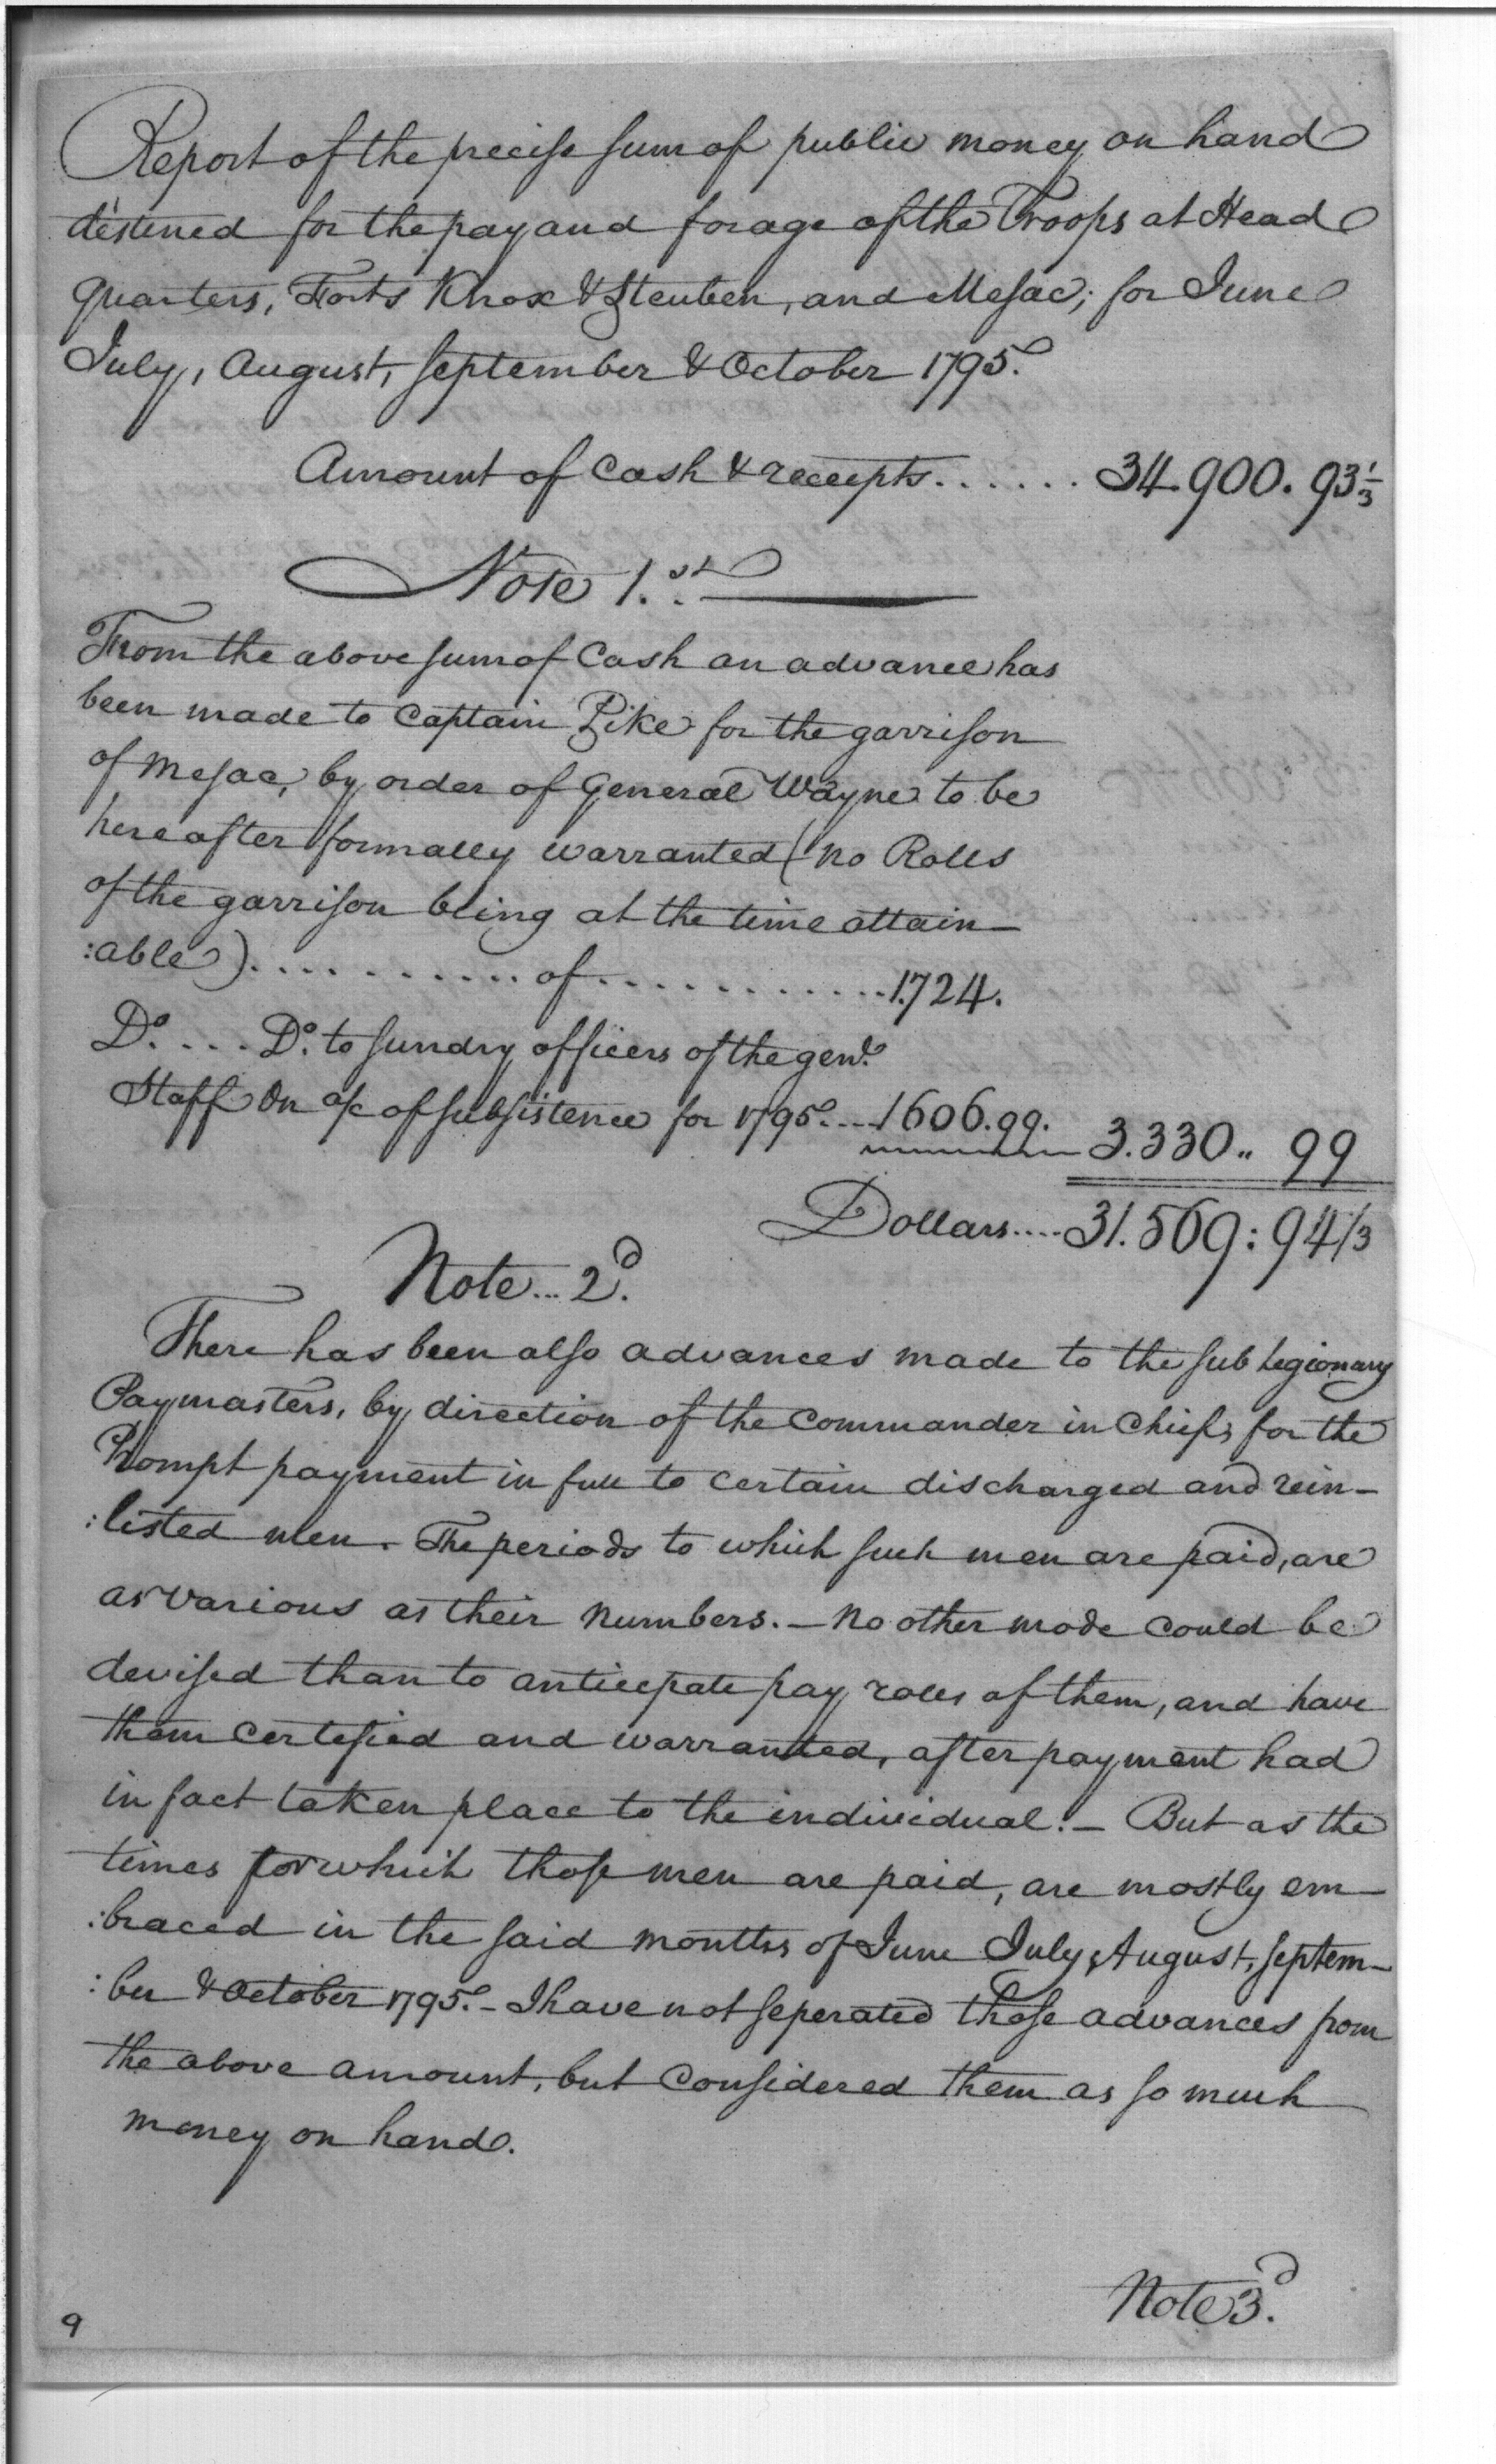 Report of the precise sum of public money on hand
destined for the pay and forage of the Troops at Head
quarters, Forts Knox & Steuben, and Mesac; for June
July, August, September & October 1795.
Amount of Cash & receipts...... 34.900. 93 1/3
Note 1.st
From the above sum of Cash an advance has
been made to Captain Pike for the garrison
of Mesac, by order of General Wayne to be
hereafter formally warranted (no Rolls
of the garrison being at the time attain-
:able)............ of............ 1.724.
Do. ... Do. to sundry officers of the genl.
Staff On a/c of subsistence for 1795....1606.99. 3.330.. 99
Dollars.... 31.569: 94/3
Note... 2d.
There has been also advances made to the sub Legionary
Paymasters, by direction of the Commander in Chief, for the
Prompt payment in full to certain discharged and rein-
:listed men. The periods to which such men are paid, are
as various as their numbers. - No other mode could be
devised than to anticepate pay rolls of them, and have
them certefied and warranted, after payment had
in fact taken place to the individual. - But as the
times for which those men are paid, are mostly em-
:braced in the said months of June July, August, Septem-
:ber & October 1795. - I have not seperated those advances from
the above amount, but Considered them as so much
money on hand.
Note 3d.
9